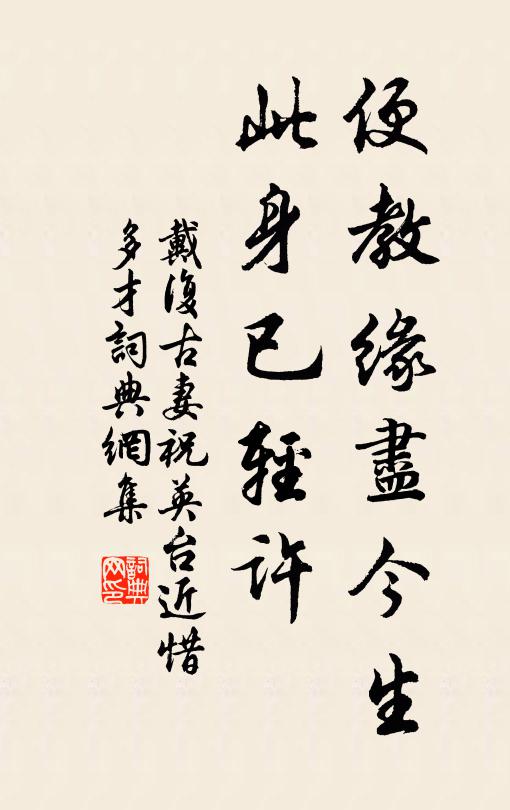 便教緣盡今生
此身已輕許
戴復古妻祝英台近惜
多才詞典網集
詞典网印